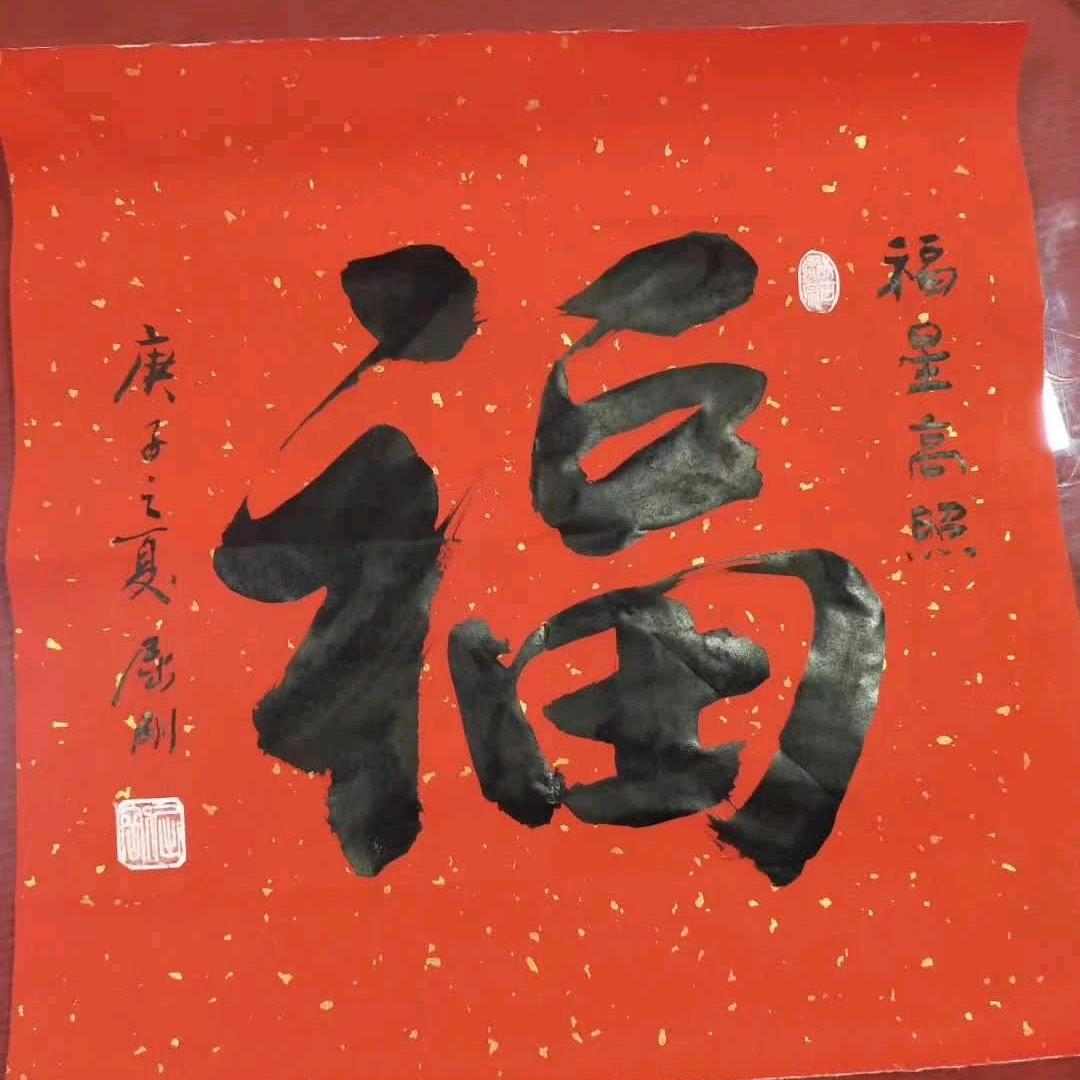 福星高照
福
庚子之夏 屈刚